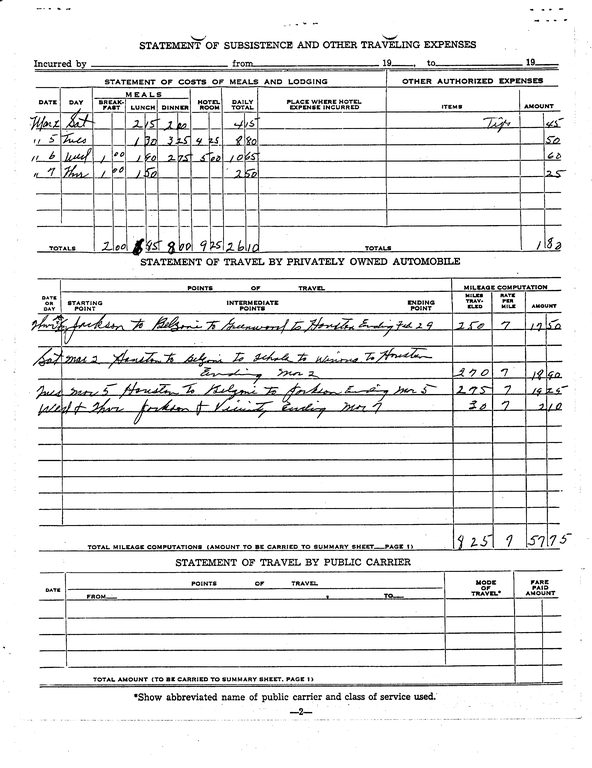 STATEMENT OF SUBSISTENCE AND OTHER TRAVELING EXPENSES
Incurred by from 19 , to 19
STATEMENT OF COSTS OF MEALS AND LODGING OTHER AUTHORIZED EXPENSES
DATE DAY MEALS BREAK-FAST LUNCH DINNER HOTEL ROOM DAILY TOTAL PLACE WHERE HOTEL EXPENSE INCURRED ITEMS AMOUNT
Mar 2 Sat 2 15 2 00 4 15 Tips 45
" 5 Tues 1 30 3 25 4 25 8 80 50
" 6 Wed 1 00 1 90 2 75 5 00 10 65 60
" 7 Thur 1 00 1 50 2 50 25
TOTALS 2 00 6 85 8 00 9 25 26 10 TOTALS 1 80
STATEMENT OF TRAVEL BY PRIVATELY OWNED AUTOMOBILE
POINTS OF TRAVEL MILEAGE COMPUTATION
DATE OR DAY STARTING POINT INTERMEDIATE POINTS ENDING POINT MILES TRAV-ELED RATE PER MILE AMOUNT
Jackson to Belzoni to Greenwood to Houston Ending Feb 29 250 7 17 50
Sat Mar 2 Houston to Belzoni to to Winona to Houston
Ending Mar 2 270 7 18 90
Tues Mar 5 Houston to Belzoni to Jackson Ending Mar 5 275 7 19 25
Wed & Thur Jackson & Vicinity Ending Mar 7 30 7 2 10
TOTAL MILEAGE COMPUTATIONS (AMOUNT TO BE CARRIED TO SUMMARY SHEET—PAGE 1) 825 7 57 75
STATEMENT OF TRAVEL BY PUBLIC CARRIER
DATE POINTS OF TRAVEL MODE OF TRAVEL* FARE PAID AMOUNT
FROM— , TO—
TOTAL AMOUNT (TO BE CARRIED TO SUMMARY SHEET. PAGE 1)
*Show abbreviated name of public carrier and class of service used.
—2—